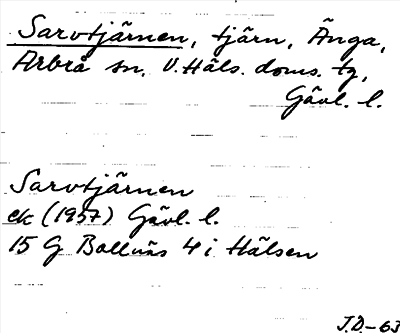 Sarvtjärnen, tjärn, Änga,
Arbrå sn, V. Häls. doms. tg,
Gävl. l.
Sarvtjärnen
ek (1957) Gävl. l.
15 G Bollnäs 4 i Hälsen
J.D.-63